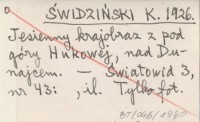 ŚWIDZIŃSKI K. 1926.
Jesienny krajobraz z pod
góry Hukowej, nad Du-
najcem. — Światowid 3,
nr 43: , il. Tylko fot.